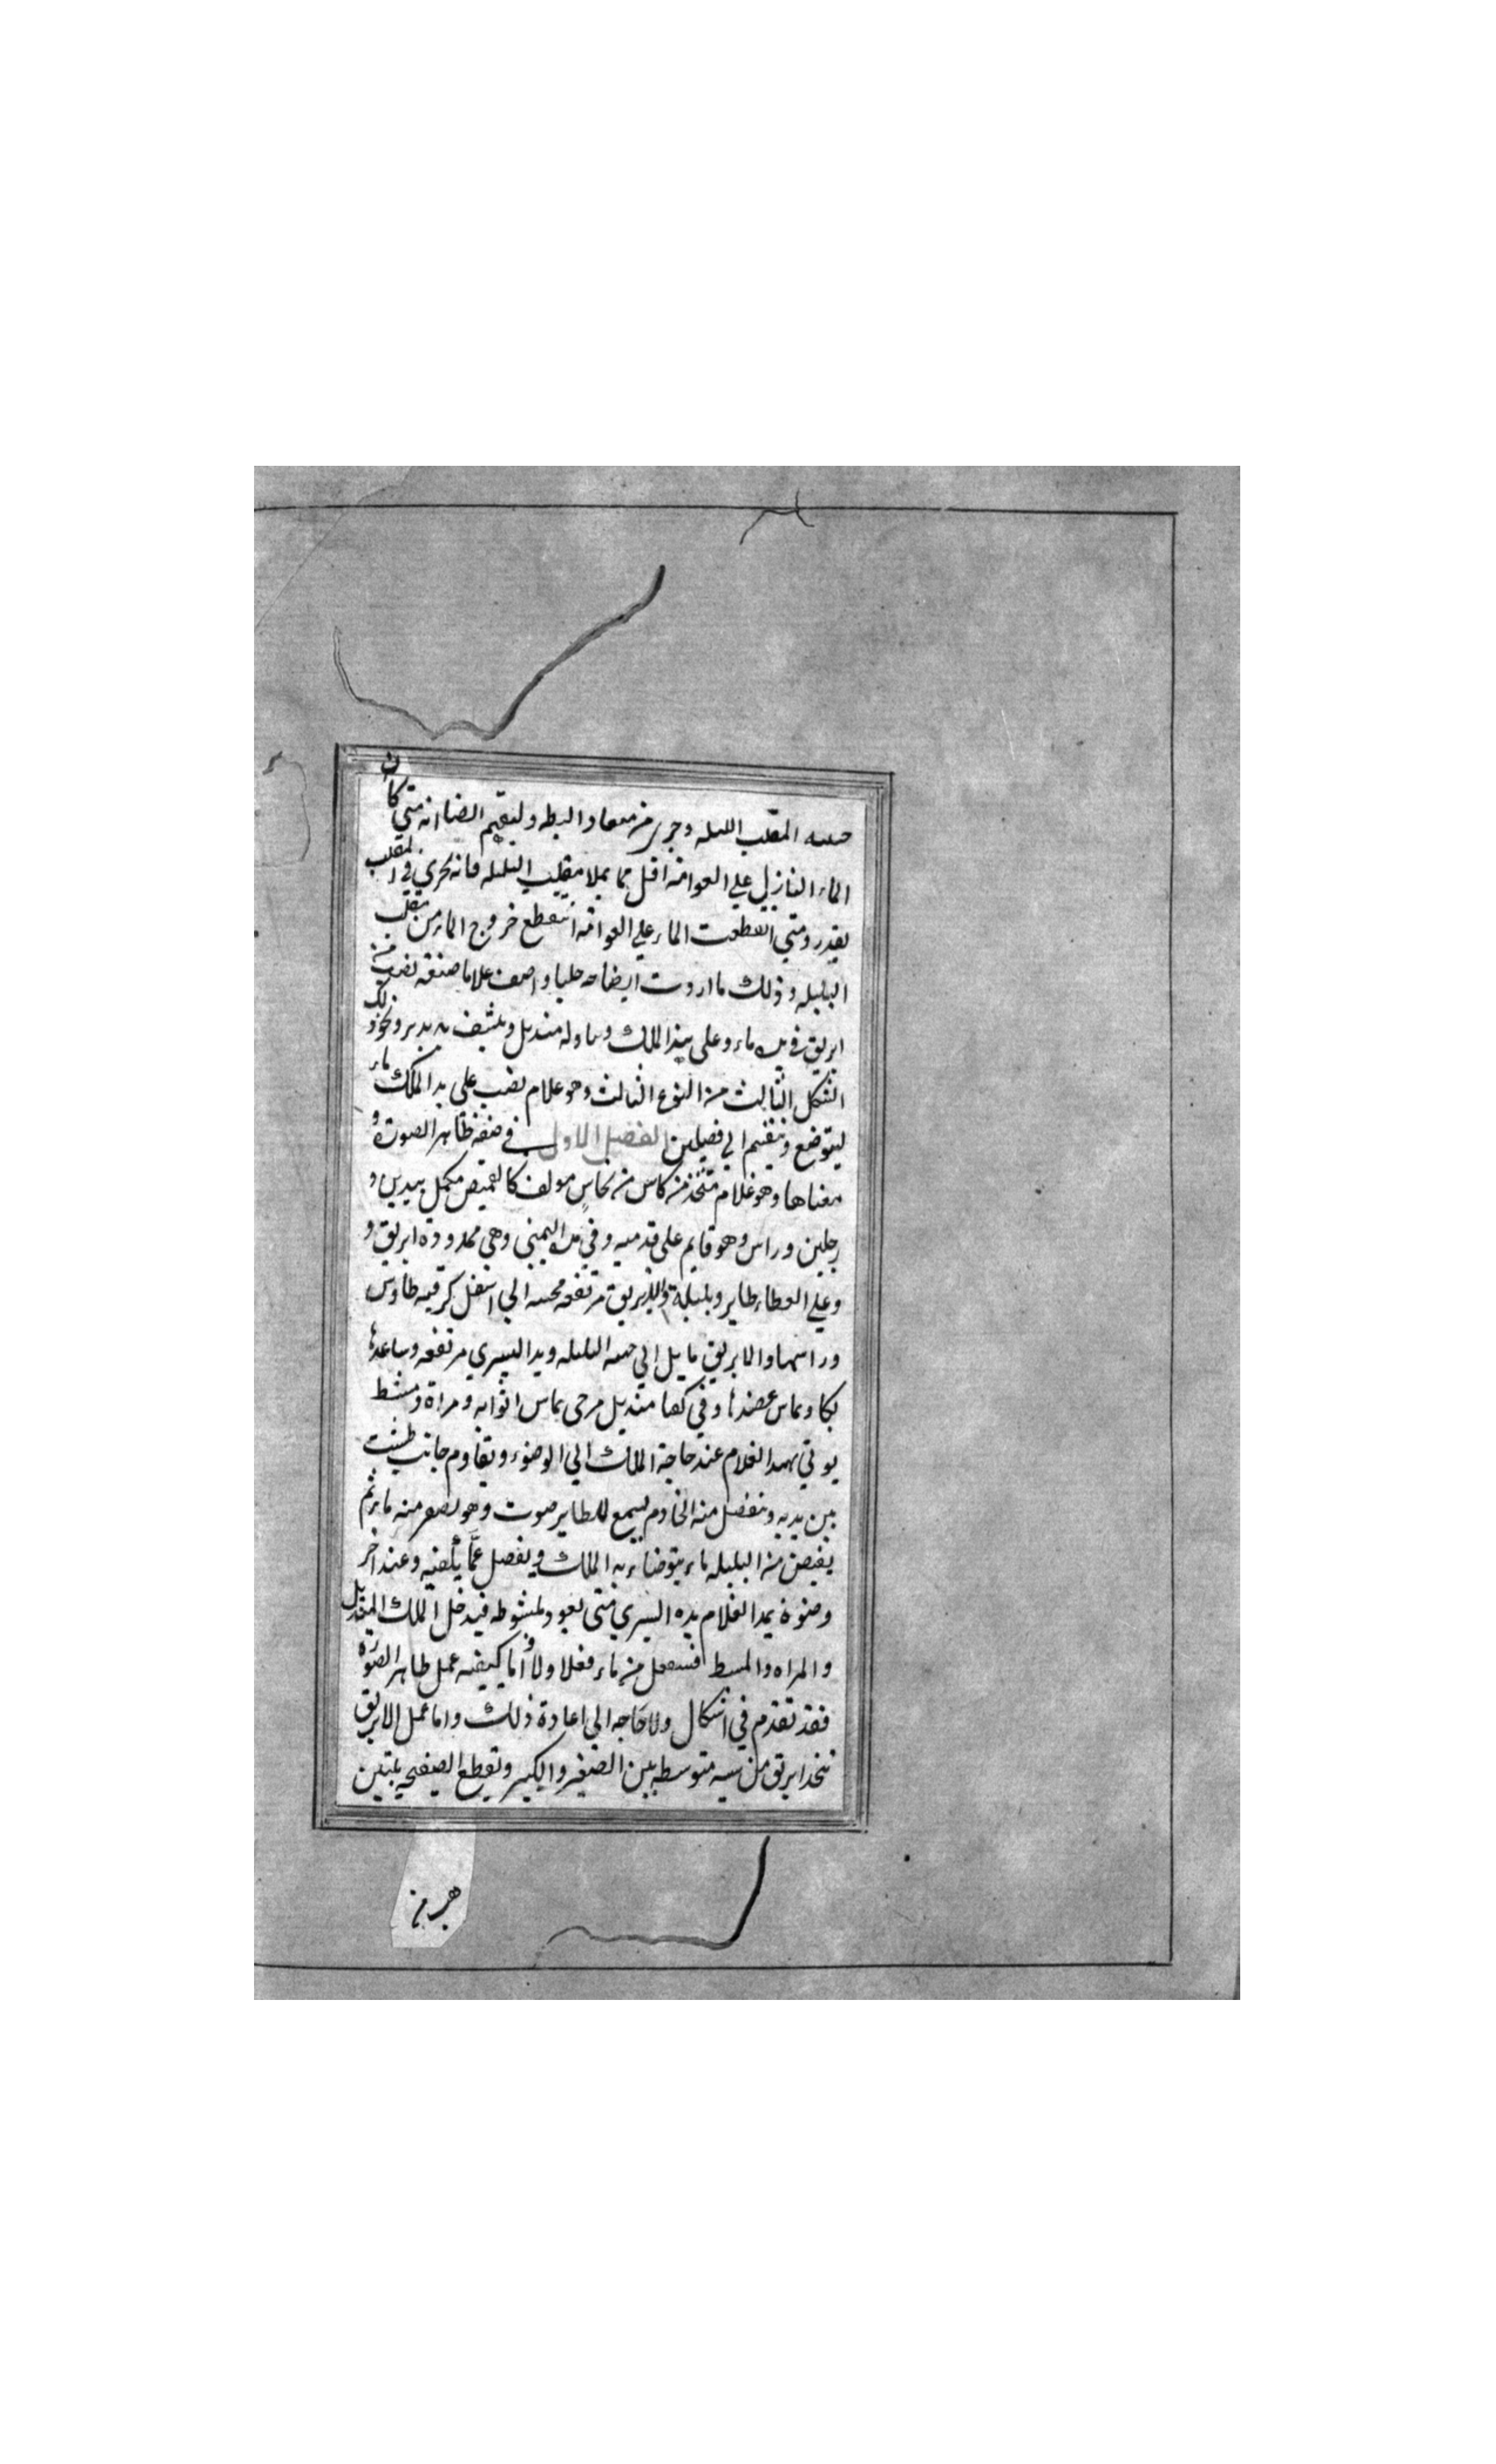 المقلب البلبله وجرى من منقار البطه وليقم ايضا انه متى كان
الماء النازل علي العوامه اقل مما يملا مقلب البلبله فانه يجري في المقلب
بقدره ومتي انقطعت الماء علي العوامه انقطع خروج الماء من مقلب
البلبله وذلك ما اردت ايضاحه جليا واصف غلاما صنعته يصب من
ابريق في يده ماء وعلى يد الملك ويناوله منديل وينشف به يديه ونحو ذلك
الشكل الثالث من النوع الثالث وهو غلام يصب على يد الملك ماء
ليتوضع وينقسم الي فصلين الفصل الاول في صفه ظاهر الصوت و
معناها وهو غلام متخذ من كاس من نحاس مولف كالقميص مكمل بيدين و
رجلين وراس وهو قايم على قدميه وفي يده اليمني وهي ممدودة ابريق و
وعلي الغطاء طاير وبلبلة والابريق مرتفعه محنيه الي اسفل كرقبه طاوس
وراسها والابريق مايل الي جهه البلبله ويد اليسري مرتفعه وساعدها
يكاد يماس عضدها وفي كفها منديل مرخى يماس اثوابه ومراة ومشط
يوتي بهذا الغلام عند حاجة الملك الي الوضوء ويقاوم جانب طشت
بين يديه وينفصل منه الخادم يسمع للطاير صوت وهو يصفر منه ما ثم
يفيض من البلبله ماء يتوضاء به الملك ويفصل عما يكفيه وعند اخر
وضوءه يمد الغلام يده اليسري متى يعود لمشوطه فيدخل الملك المنديل
والمراه والمسط فيستعمل من ماء فعلا ولا واما كيفيه عمل ظاهر الصوره
فقد تقدم في اشكال ولا حاجه الي اعادة ذلك واما عمل الابريق
يتخذ ابريق من شبه متوسطه بين الصغير والكبير وتقطع الصفيحه بلبتين